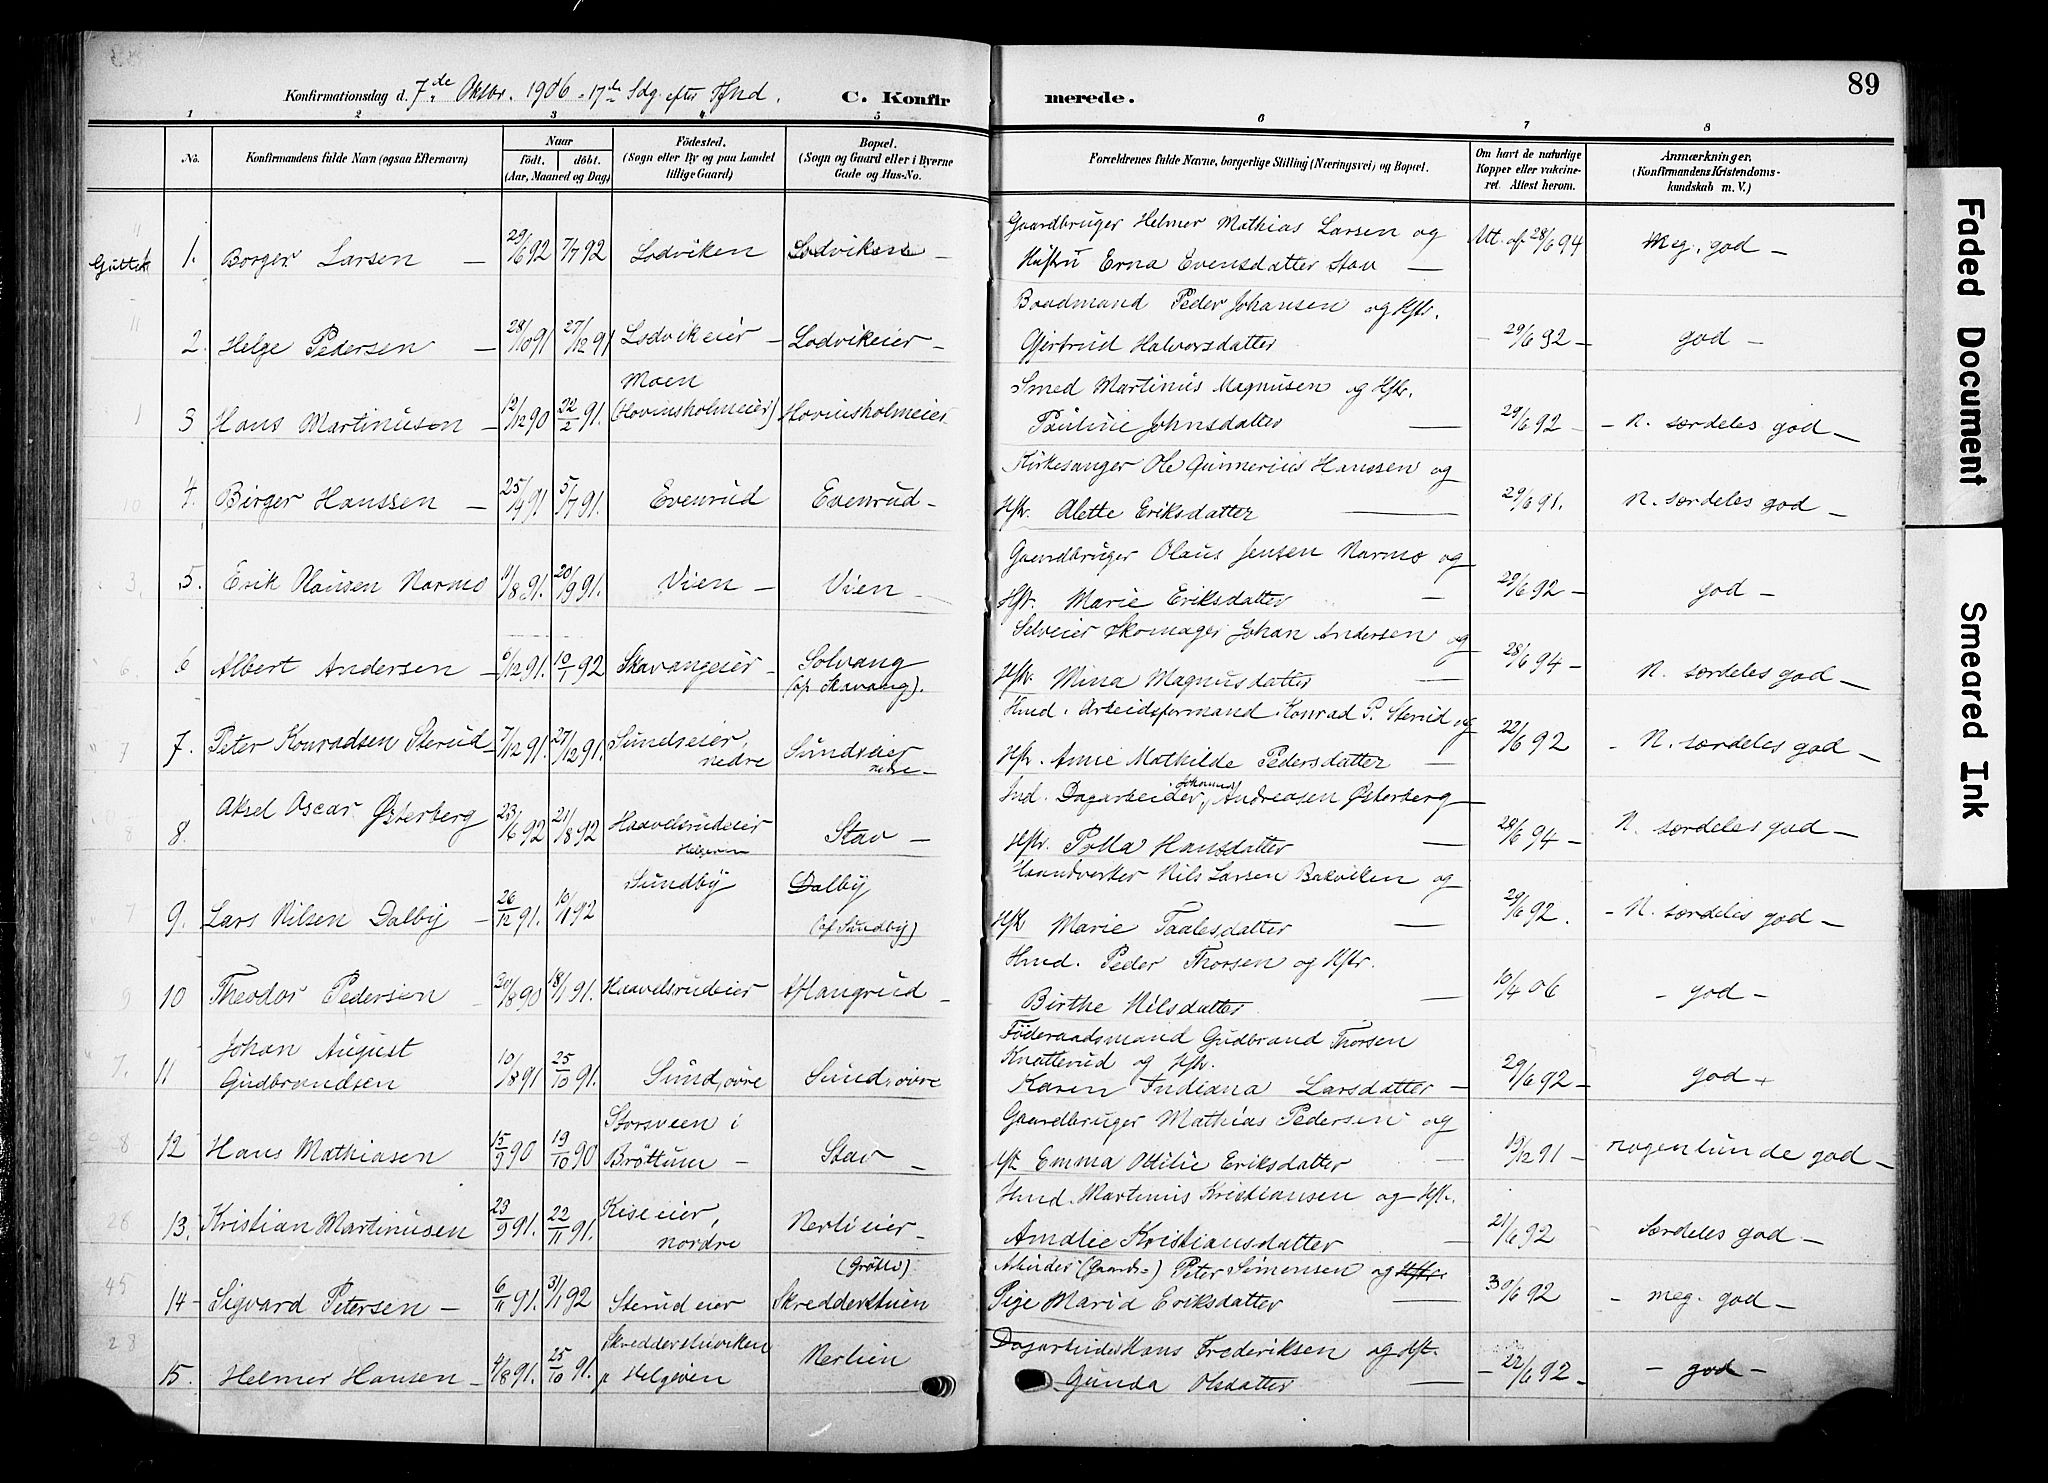 Konfirmationsdag d. 7de Oktbr. 1906 - 17de Sdg. efter
C. Konfir merede. 89
1 2 3 4 5 6 7 8
No. Konfirmandens fulde Navn (ogsaa Efternavn) Naar født. døbt. (Aar, Maaned og Dag) Fødested. (Sogn eller By og paa Landet tillige Gaard) Bopæl. (Sogn og Gaard eller i Byerne Gade og Hus-No. Forældrenes fulde Navne, borgerlige Stilling (Næringsvei) og Bopæl. Om havt de naturlige Kopper eller vakcineret. Attest herom. Anmærkninger. (Konfirmandens Kristendomskundskab m. V.)
Gaardbruger Helmer Mathias Larsen og
1. Borger Larsen — 29/6 92 7/7 92 Lodviken Lodviken — Hustru Erna Evensdatter Stav — Att. af 28/6 94 Meg. god —
Baadmand Peder Johansen og Hstr.
2. Helge Pedersen — 28/10 91 27/12 91 Lodvikeier — Lodvikeier — Gjertrud Halvorsdatter — 29/6 92 — god —
Moen Smed Martinus Magnusen og Hstr.
3 Hans Martinusen — 12/12 90 22/2 91. (Hovinsholmeier) Hovinsholmeier Pauline Johnsdatter — 29/6 92 — — N. særdeles god —
Kirkesanger Ole Gunnerius Hanssen og
4. Birger Hanssen — 25/4 91 5/7 91. Evenrud Evenrud — Hstr. Alette Eriksdatter — 29/6 91. N. særdeles god —
Gaardbruger Olaus Jensen Narmo og
5. Erik Olausen Narmo 11/8 91. 20/9 91. Vien — Vien — Hstr. Marie Eriksdatter — 29/6 92 — god —
Selveier Skomager Johan Andersen og
6 Albert Andersen — 6/12 91. 10/1 92 Skavangeier — Solvang (af Skavang). Hstr. Mina Magnusdatter — 28/6 94 — N. særdeles god —
Hmd. Arbeidsformand Konrad P. Sterud og
7. Peter Konradsen Sterud 7/12 91. 27/12 91. Sundseier, nedre Sundseier nedre — Hstr. Anne Mathilde Pedersdatter — 22/6 92 — N. særdeles god —
Ind. Dagarbeider, Johannes Andreasen Østerberg
8. Aksel Oscar Østerberg 23/6 92 21/8 92 Haavelsrudeier Helgøen Stav — Hstr. Polla Hansdatter — 28/6 94 — N. særdeles god —
Haandverker Nils Larsen Bakviken og
9. Lars Nilsen Dalby — 26/12 91. 10/1 92 Sundby Dalby (af Sundby) Hstr Marie Taalesdatter — 29/6 92. — N. særdeles god —
Hmd. Peder Thorsen og Hstr.
10 Theodor Pedersen — 20/8 90 18/1 91. Haavelsrudeier Aflangrud — Birthe Nilsdatter — 10/4 06 — god —
Føderaadsmand Gudbrand Thorsen
Knatterud og Hstr.
11 Johan August Gudbrandsen 10/8 91 25/10 91. Sund, øvre Sund, øvre Karen Indiana Larsdatter — 29/6 92 — god —
Gaardbruger Mathias Pedersen og
12 Hans Mathiasen 15/9 90 19/10 90 Storsveen i Brøttum — Stav — Hstr. Emma Ottilie Eriksdatter — 19/12 91 — nogenlunde god —
Hmd. Martinus Kristiansen og Hstr.
13. Kristian Martinusen 23/9 91. 22/11 91. Kiseeier, nordre Nerlieier — Amalie Kristiansdatter — 21/6 92 Særdeles god —
Arbeider (Gaards-) Peter Simensen og Hstr.
14 — Sigvard Petersen — 6/11 91. 31/1 92 Sterudeier Skredderstuen Pige Maria Eriksdatter — 30/6 92 — meg. god —
Dagarbeider Hans Frederiksen og Hst.
15. Helmer Hansen — 4/8 91. 25/10 91. Skredderstuviken p Helgøen Nerlien Gunda Olsdatter — — 22/6 92 — — god —
Faded Document
Smeared Ink